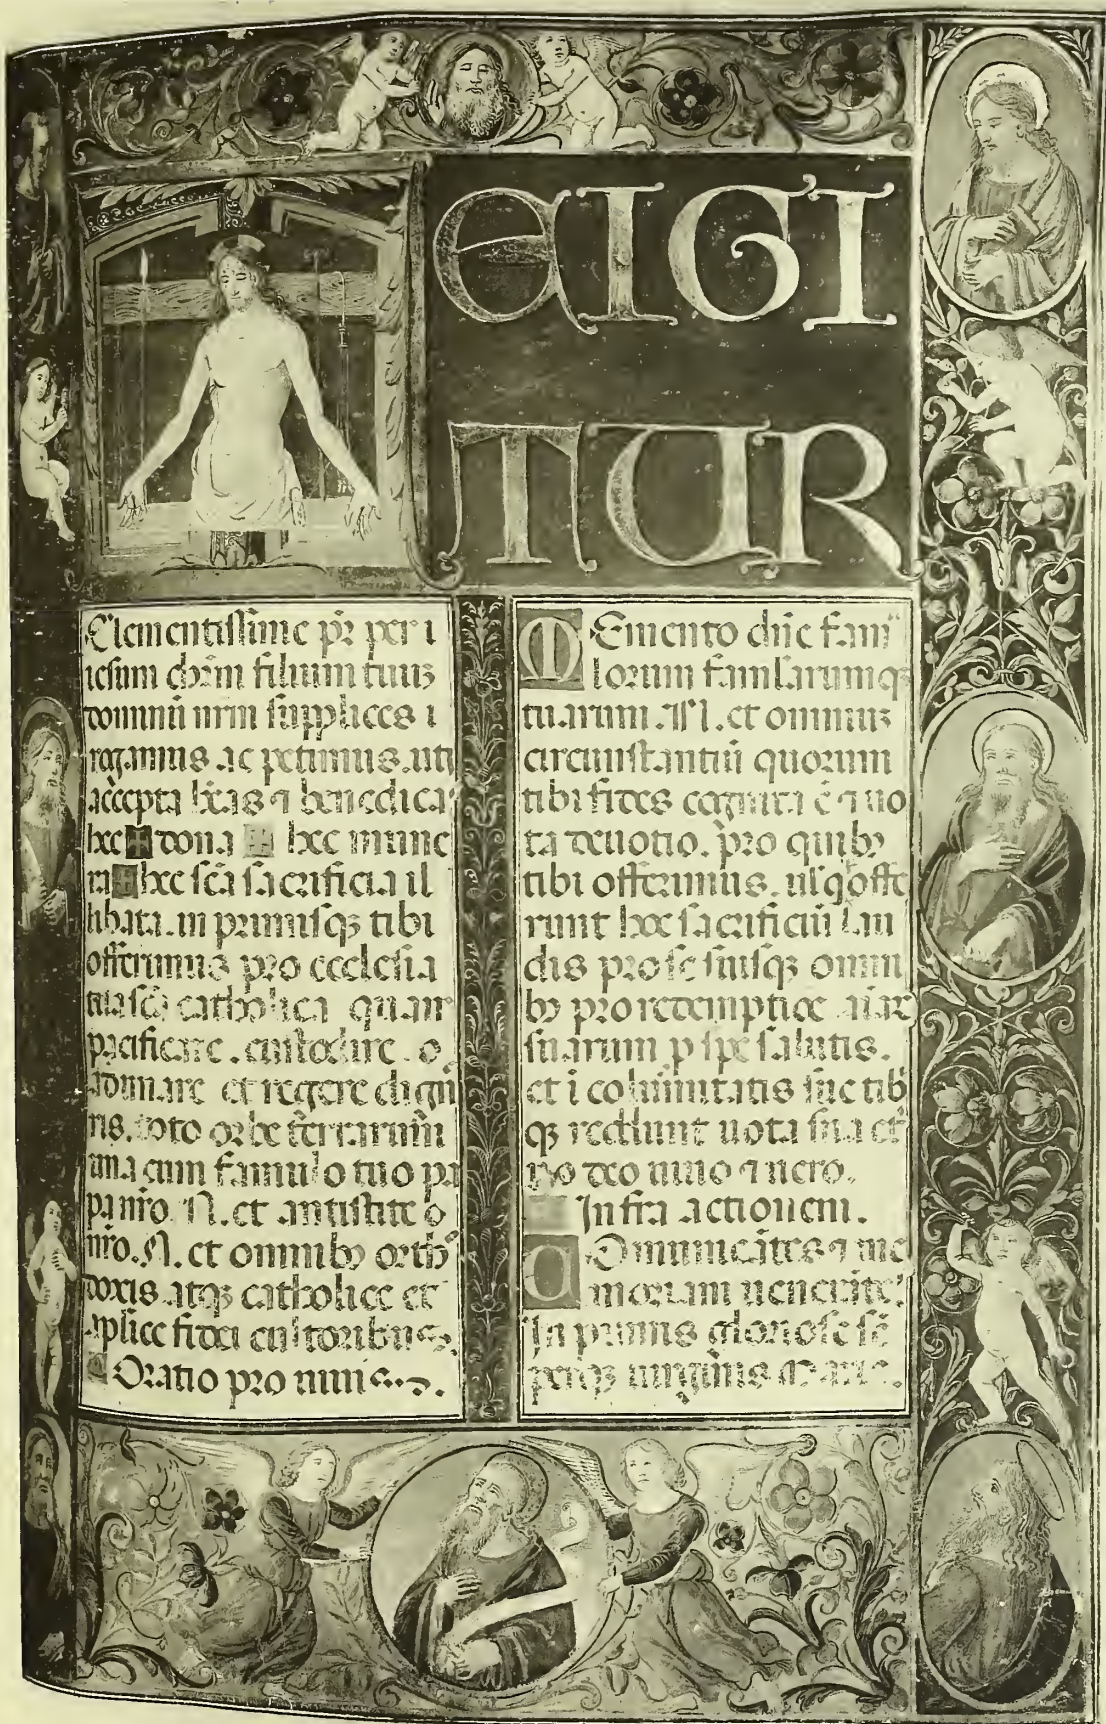 EIGI
TUR
Clementissime pr per i
iesum chrm filium tuuz
dominū nrm supplices
rogamus .ac petimus. uti
accepta hēas ⁊ benedica
hec ✠ dona ✠ hec mune
ra ✠ hec scā sacrificia il
libata. in primisqꝫ tibi
offerimus pro ecclesia
tua scā catholica quam
pacificare . custodire .
adunare et regere dign
ris. toto orbe terrarum
una cum famulo tuo pa
pa nrō. N. et antistite
nrō. N. et omnibꝫ orth
doxis .atqꝫ catholice et
aplice fidei cultoribus.
Oratio pro
MEmento dn̄e fam
lorum famlarumqꝫ
tuarum. N. et omniuꝫ
circunstantiū quorum
tibi fides cognita ē ⁊ no
ta deuotio. pro quibꝫ
tibi offerimus. ul' q offe
runt hoc sacrificiū lau
dis pro se suisqꝫ omni
bꝫ pro redemptiōe aīar
suarum p spe salutis.
et i columitatis sue tibi
qꝫ reddunt uota sua et
no deo uiuo ⁊ uero.
Infra actionem.
COmmunicātes ⁊ me
moriam uenerāte
In primis gloriose sē
perqꝫ uirginis Marie.